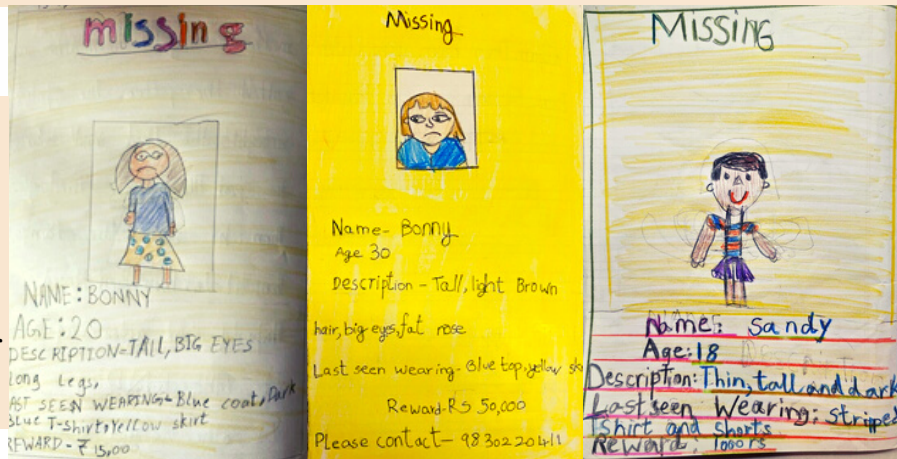 missing
NAME: BONNY
AGE: 20
DESCRIPTION=TALL, BIG EYES
Long Legs,
AST SEEN WEARING= Blue coat, Dark
Blue T-Shirt, Yellow skirt
REWARD = ₹ 15,00
Missing
Name- Bonny
Age 30
Description - Tall, light Brown
hair, big eyes, fat nose
Last seen wearing- Blue top, yellow sk
Reward-RS 50,000
Please contact- 9830220411
MISSING
Name: Sandy
Age: 18
Description: Thin, tall and dark
Last seen Wearing: striped
Tshirt and shorts
Reward: 1000rs